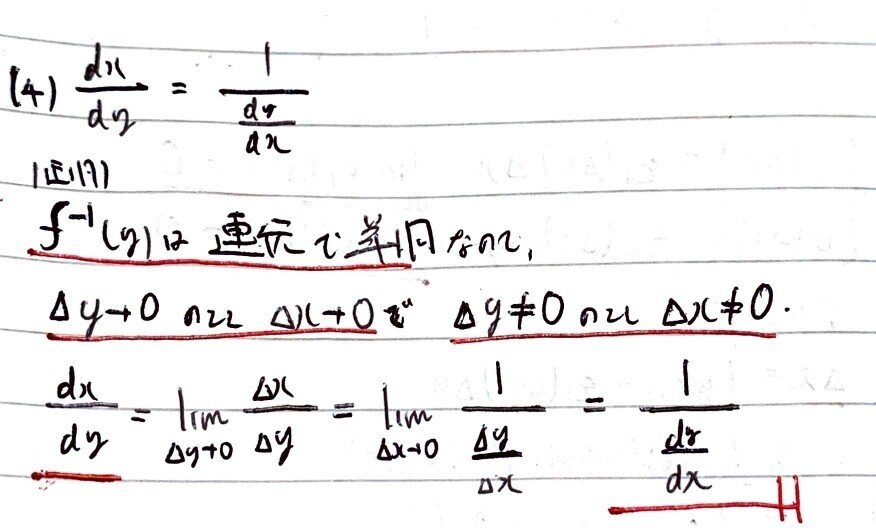 (4) dx/dy = 1/(dy/dx)
証明)
f⁻¹(y)は連続で単調なので,
Δy→0のとき Δx→0で Δy≠0のとき Δx≠0.
dx/dy = lim_{Δy→0} Δx/Δy = lim_{Δx→0} 1/(Δy/Δx) = 1/(dy/dx)